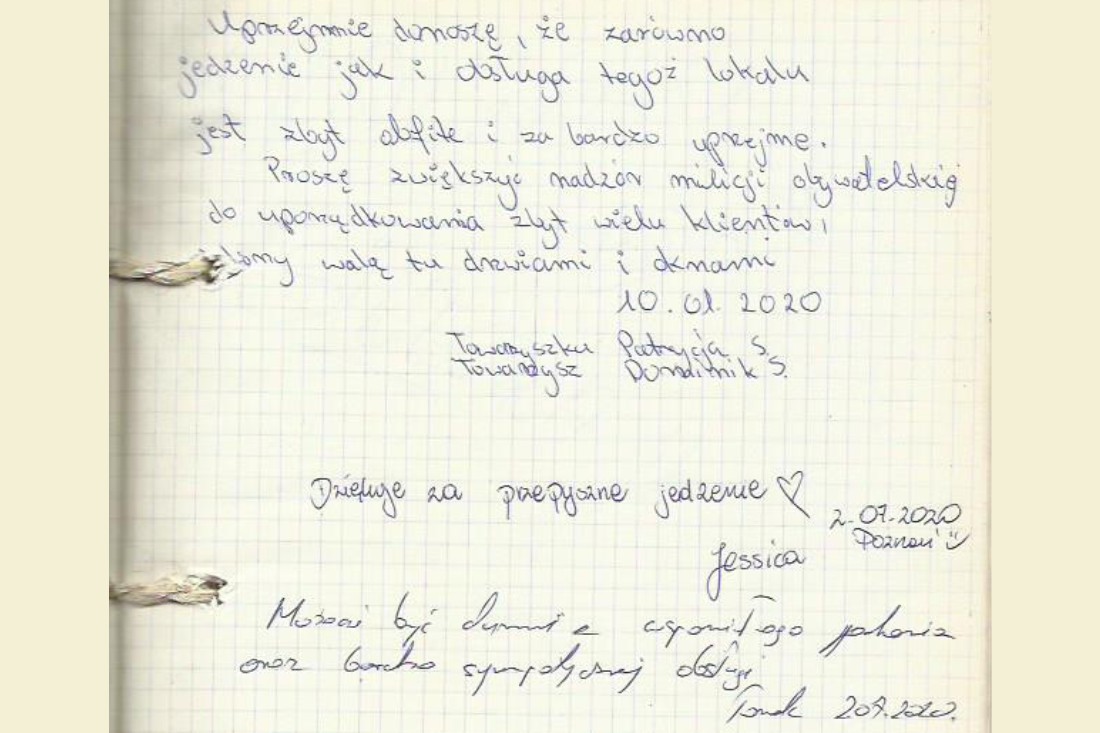 Uprzejmie donoszę, że zarówno
jedzenie jak i obsługa tegoż lokalu
jest zbyt obfite i za bardzo uprzejme.
Proszę zwiększyć nadzór milicji obywatelskiej
do uporządkowania zbyt wielu klientów,
walą tu drzwiami i oknami
10.01.2020
Towarzyszka Patrycja S.
Towarzysz Dominik S.
Dziękuję za przepyszne jedzenie ♡
2.07.2020
Poznań
Jessica
być dumni z wspaniałego jedzenia
oraz bardzo sympatycznej obsługi
Tomek 2.07.2020.